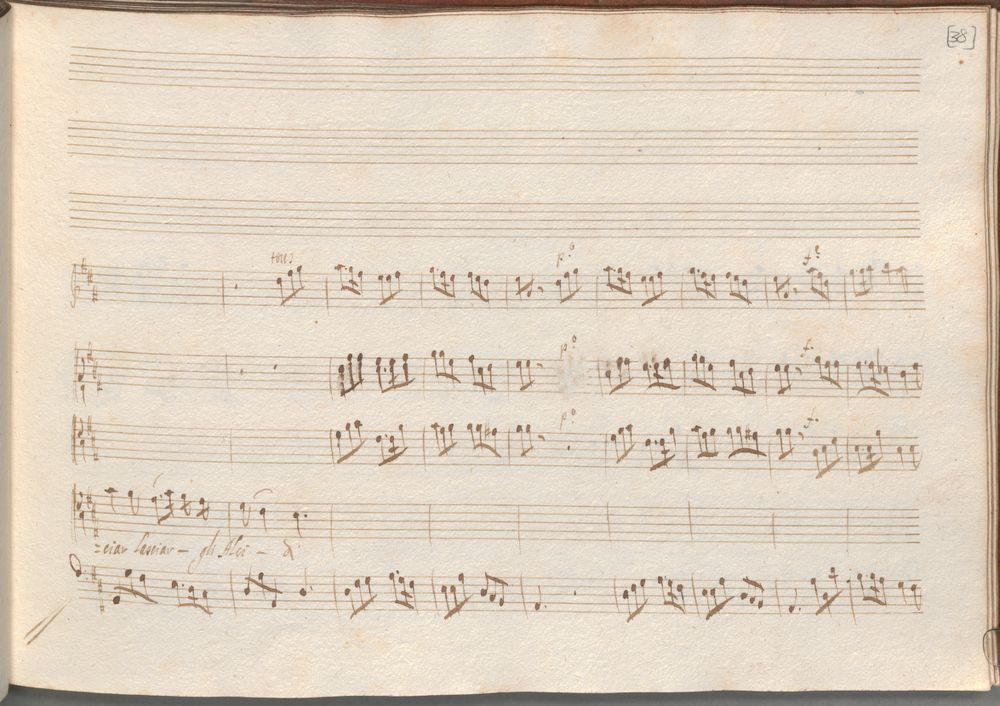 [38]
tous
p.o f.e
p.o f.
p.o f.
=ciar lasciar - gli Alci - di